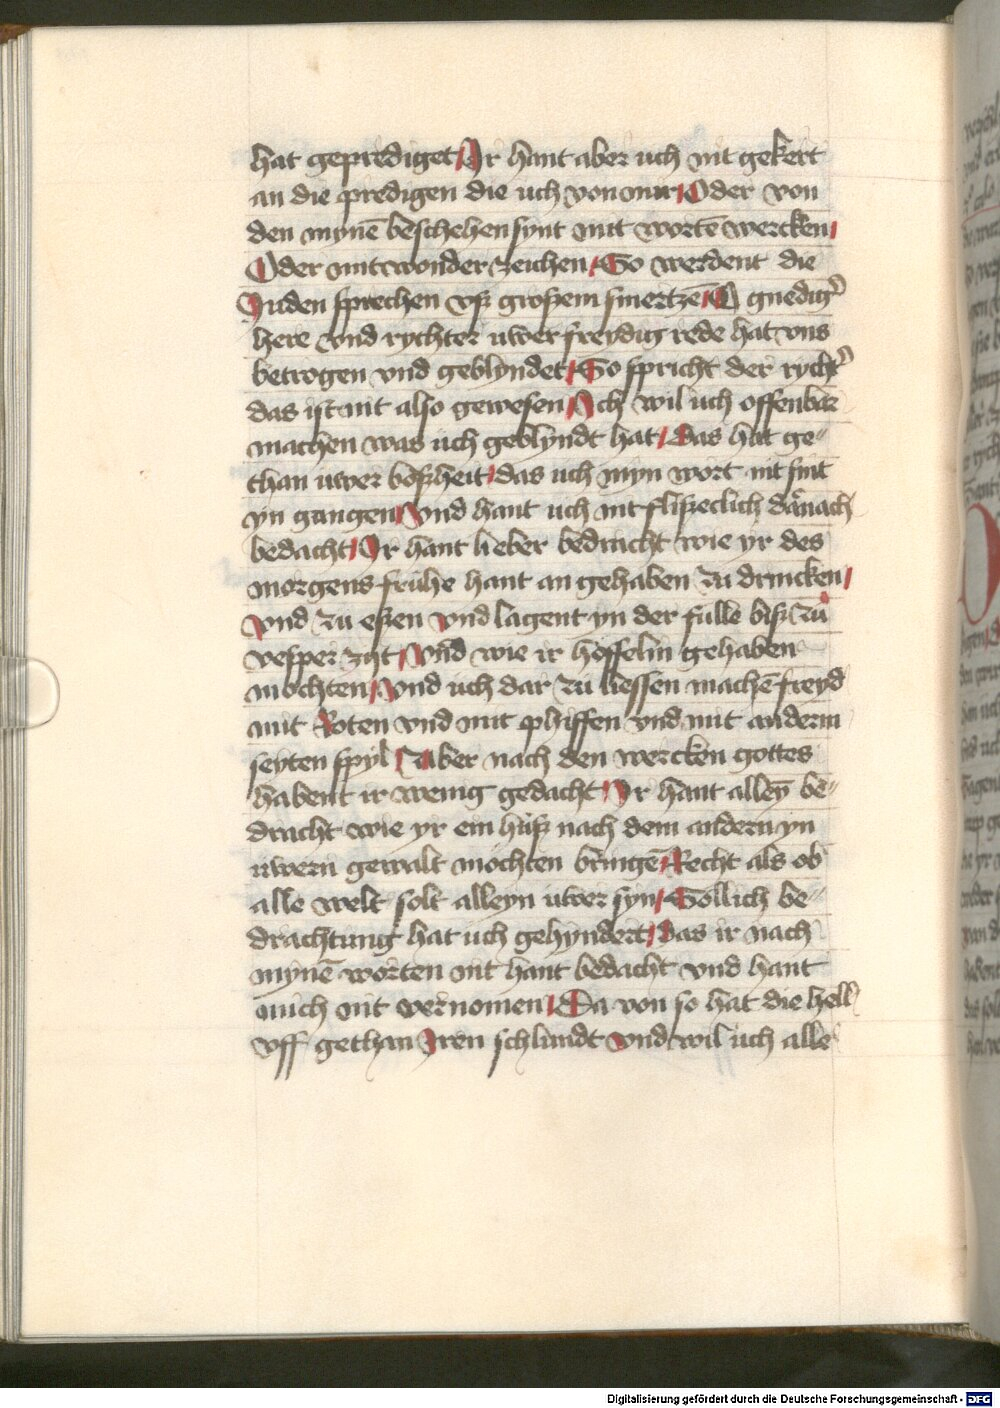 hat geprediget / Ir hant aber uch nit gekert
an die predigen die uch von mir / Oder von
den mynē beschehen synt mit wortē wercken /
Oder mit wonder zeichen / So werdent die
Juden sprechen vß großem smertzē / O gnedigʾ
here vnd rychter uwer freydig rede hat vns
betrogen vnd geblyndet / So spricht der rychtʾ
das ist nit also gewesen / Ich wil uch offenbar
machen was uch geblyndt hat / Das hat ge⸗
than uwer boßheit / das uch myn wort nit sint
yn gangen / Vnd hant uch nit flißeclich darnach
bedacht / Ir hant lieber bedracht wie yr des
morgens frühe hant an gehaben zu drincken /
vnd zu eßen vnd lagent yn der fülle biß zů
vesper zyt / Vnd wie ir hoffelin gehaben
mochten / Vnd uch dar zu liessen machē freyd
mit Roten vnd mit phiffen vnd mit anderm
seyten spyl / Aber nach den wercken gottes
habent ir wenig gedacht / Ir hant alleȳ be⸗
dracht wie yr ein huß nach dem andern yn
uwern gewalt mochten bringē / Recht als ob
alle welt solt alleyn uwer syn / Sollich be⸗
drachtung hat uch gehyndert / Das ir nach
mynē worten nit hant bedacht vnd hant
mich nit vernomen / Da von so hat die hellʾ
vff gethan Iren schlundt vnd wil uch alle
Digitalisierung gefördert durch die Deutsche Forschungsgemeinschaft - DFG